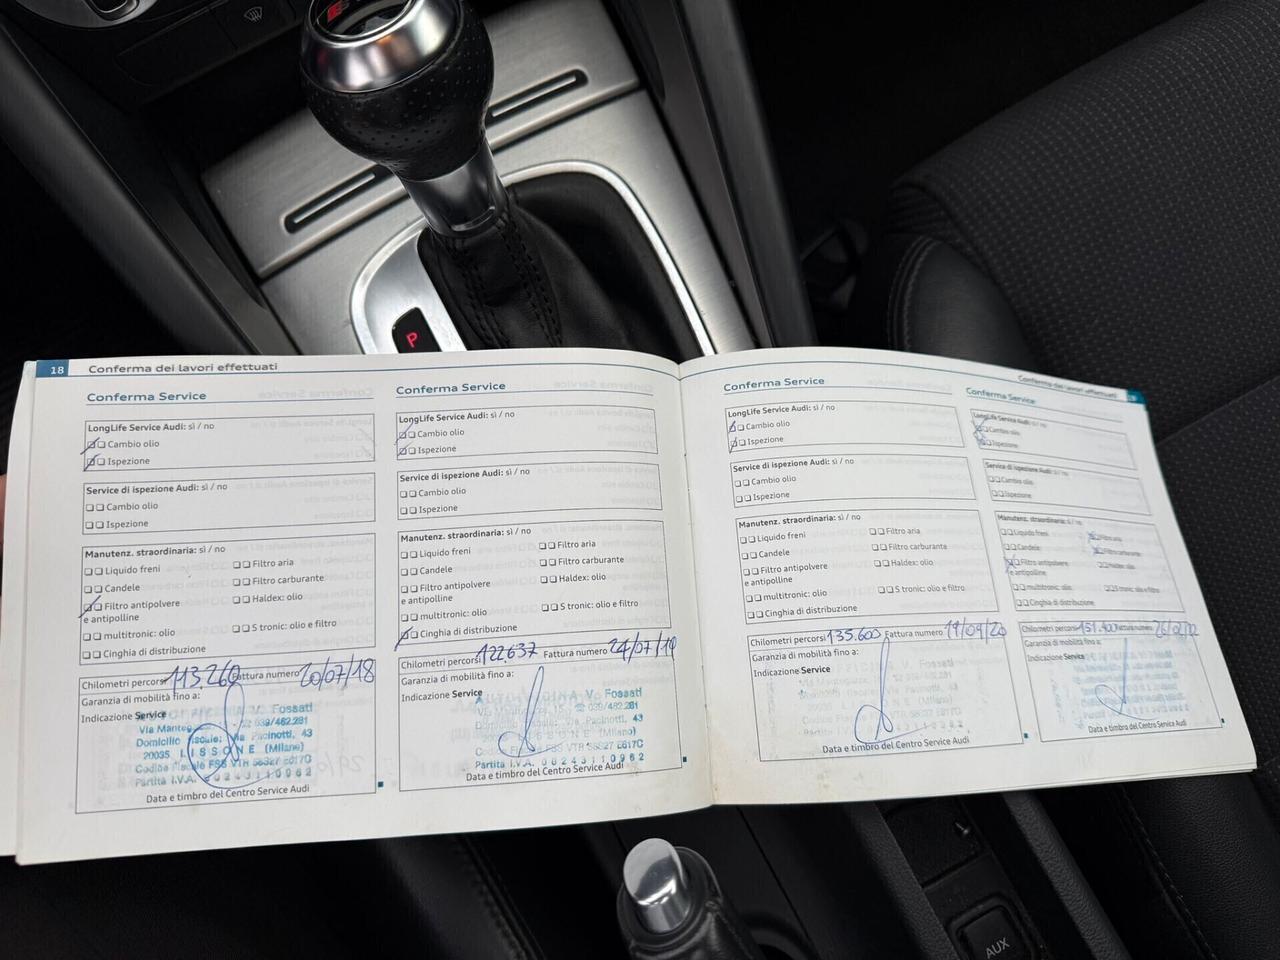 P
18 Conferma dei lavori effettuati
Conferma Service
LongLife Service Audi: sì / no
Cambio olio
Ispezione
Service di ispezione Audi: sì / no
Cambio olio
Ispezione
Manutenz. straordinaria: sì / no
Liquido freni
Filtro aria
Candele
Filtro carburante
Filtro antipolvere
e antipolline
Haldex: olio
multitronic: olio
S tronic: olio e filtro
Cinghia di distribuzione
Chilometri percorsi 113.260 Fattura numero 20/07/18
Garanzia di mobilità fino a:
Indicazione Service
V. Fossati
Via
039/482.281
Domicilio Fiscale: Via Pacinotti, 43
20035 LISSONE (Milano)
Codice Fiscale FSS VTR 56S27 E617C
Partita I.V.A. 00243110962
Data e timbro del Centro Service Audi
Conferma Service
LongLife Service Audi: sì / no
Cambio olio
Ispezione
Service di ispezione Audi: sì / no
Cambio olio
Ispezione
Manutenz. straordinaria: sì / no
Liquido freni
Filtro aria
Candele
Filtro carburante
Filtro antipolvere
e antipolline
Haldex: olio
multitronic: olio
S tronic: olio e filtro
Cinghia di distribuzione
Chilometri percorsi 122.637 Fattura numero 24/07/19
Garanzia di mobilità fino a:
Indicazione Service
V. Fossati
039/482.281
Domicilio Fiscale: Via Pacinotti, 43
LISSONE (Milano)
Codice Fiscale FSS VTR 56S27 E617C
Partita I.V.A. 00243110962
Data e timbro del Centro Service Audi
Conferma Service
LongLife Service Audi: sì / no
Cambio olio
Ispezione
Service di ispezione Audi: sì / no
Cambio olio
Ispezione
Manutenz. straordinaria: sì / no
Liquido freni
Filtro aria
Candele
Filtro carburante
Filtro antipolvere
e antipolline
Haldex: olio
multitronic: olio
S tronic: olio e filtro
Cinghia di distribuzione
Chilometri percorsi 135.600 Fattura numero
Garanzia di mobilità fino a:
Indicazione Service
V. Fossati
Data e timbro del Centro Service Audi
Conferma dei lavori effettuati 19
Conferma Service
LongLife Service Audi: sì / no
Cambio olio
Ispezione
Service di ispezione Audi: sì / no
Cambio olio
Ispezione
Manutenz. straordinaria: sì / no
Liquido freni
Filtro aria
Candele
Filtro carburante
Filtro antipolvere
e antipolline
Haldex: olio
multitronic: olio
S tronic: olio e filtro
Cinghia di distribuzione
Chilometri percorsi 151.400 Fattura numero
Garanzia di mobilità fino a:
Indicazione Service
Data e timbro del Centro Service Audi
AUX